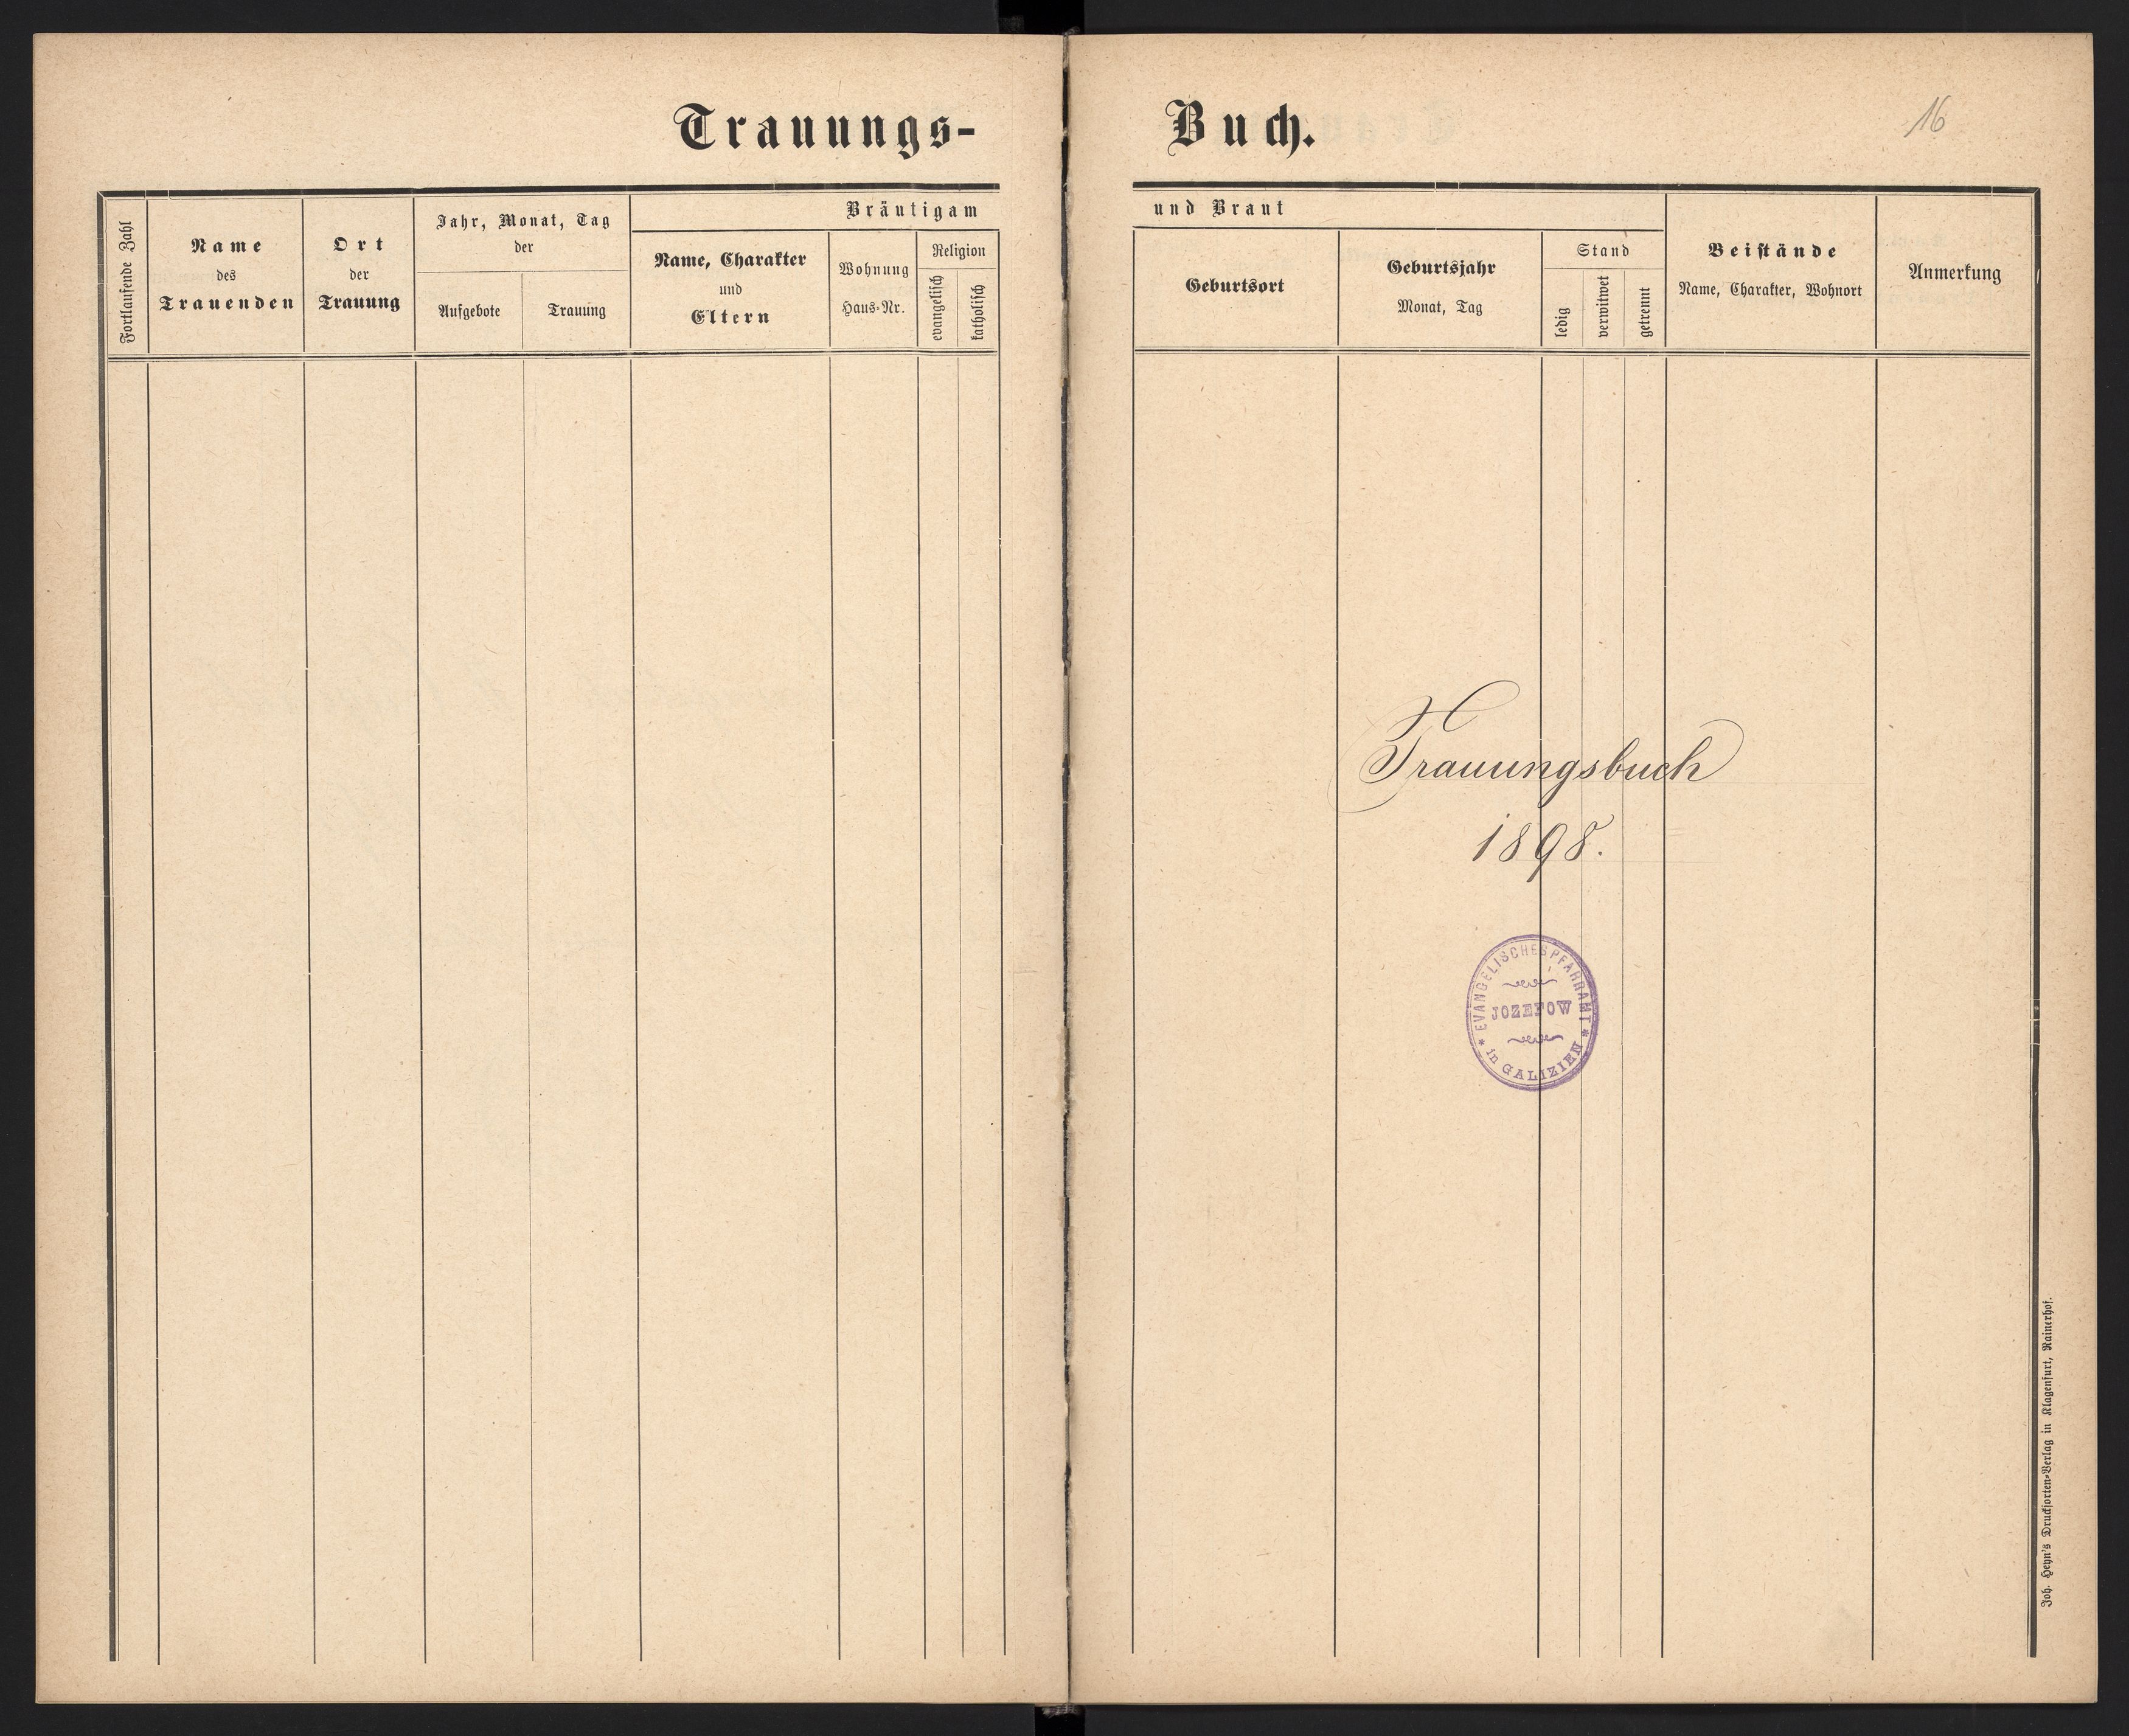 Trauungs-
Buch.
16
Fortlaufende Zahl
Name
des
Trauenden
Ort
der
Trauung
Jahr, Monat, Tag
der
Aufgebote
Trauung
Bräutigam
Name, Charakter
und
Eltern
Wohnung
Haus-Nr.
Religion
evangelisch
katholisch
und Braut
Geburtsort
Geburtsjahr
Monat, Tag
Stand
ledig
verwitwet
getrennt
Beistände
Name, Charakter, Wohnort
Anmerkung
Trauungsbuch
1898.
EVANGELISCHES PFARRAMT
JOZEFOW
* in GALIZIEN *
Joh. Heyn's Drucksorten-Verlag in Klagenfurt, Rainerhof.